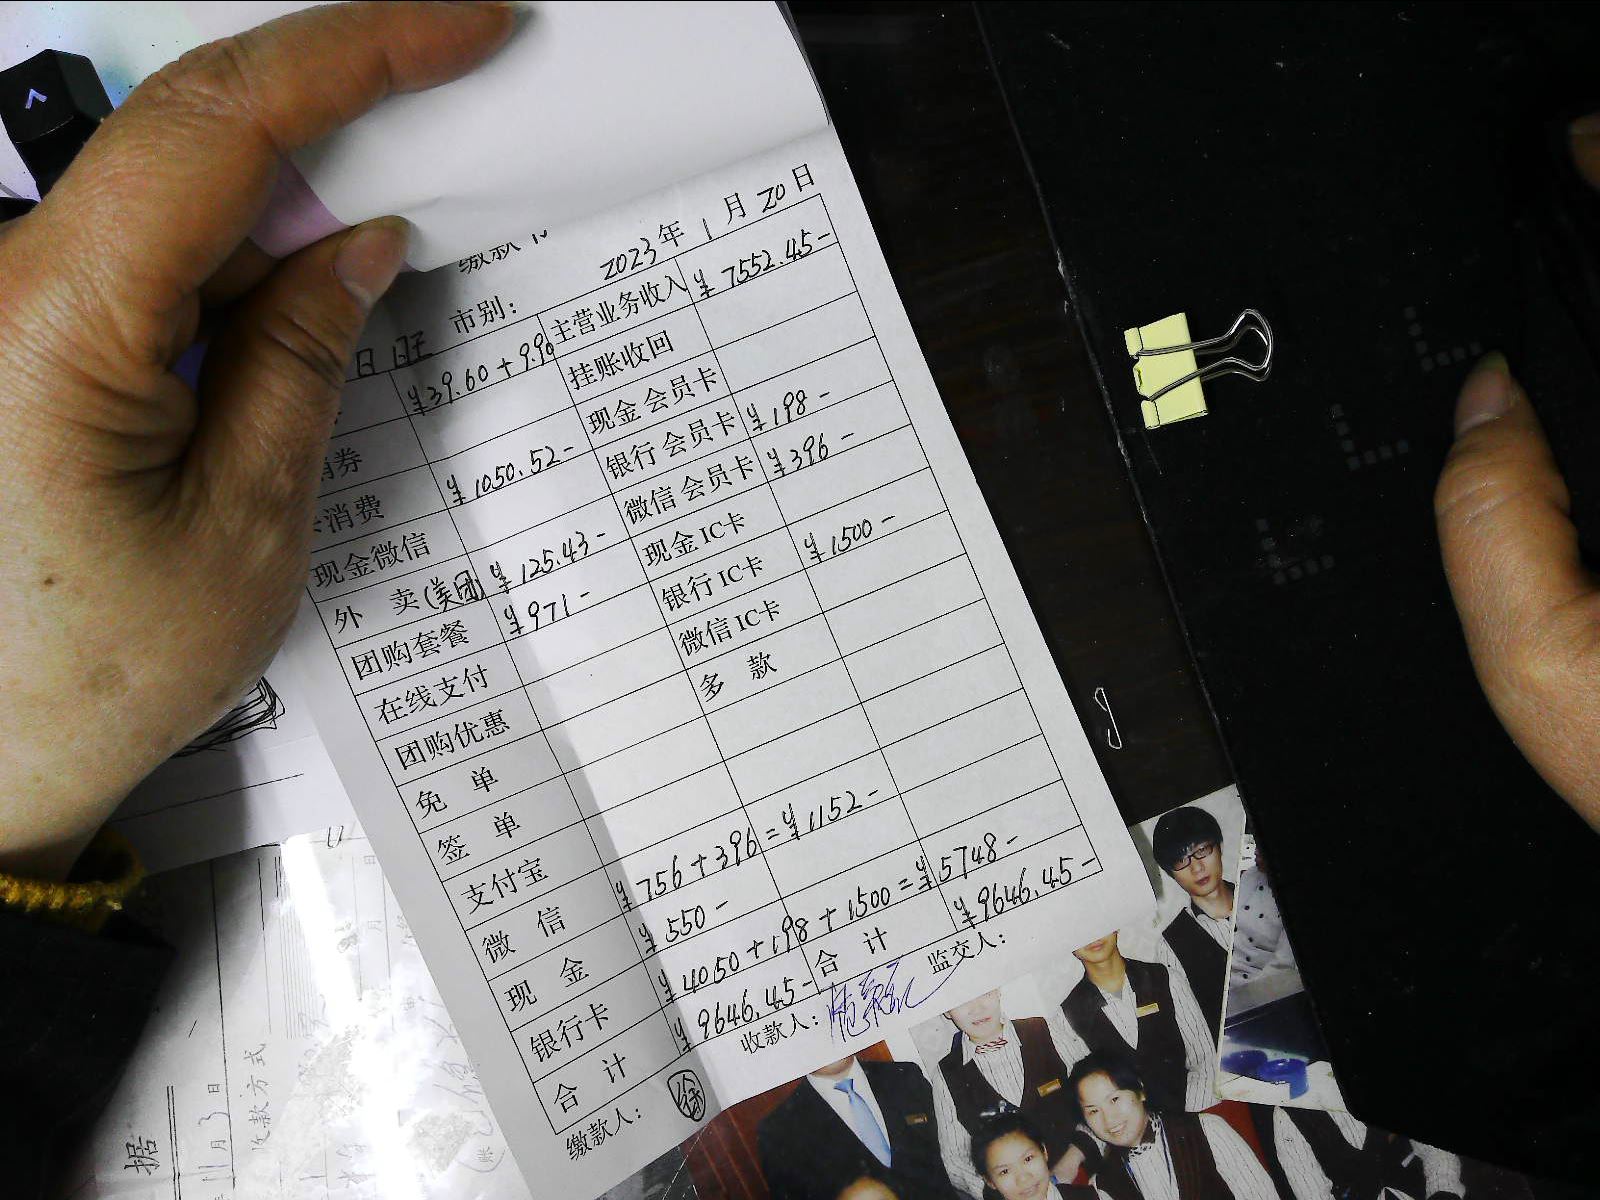 缴款
2023年 1月20日
日旺 市别:
¥39.60+9.90 主营业务收入 ¥7552.45-
挂账收回
券 现金会员卡
消费 ¥1050.52- 银行会员卡 ¥198-
现金微信 微信会员卡 ¥396-
外 卖(美团) ¥125.43- 现金IC卡
团购套餐 ¥971- 银行IC卡 ¥1500-
在线支付 微信IC卡
团购优惠 多 款
免 单
签 单
支付宝
微 信 ¥756+396=¥1152-
现 金 ¥550-
银行卡 ¥4050+198+1500=¥5748-
合 计 ¥9646.45- 合 计 ¥9646.45-
缴款人: 徐 收款人: 监交人:
据
11月3日
收款方式